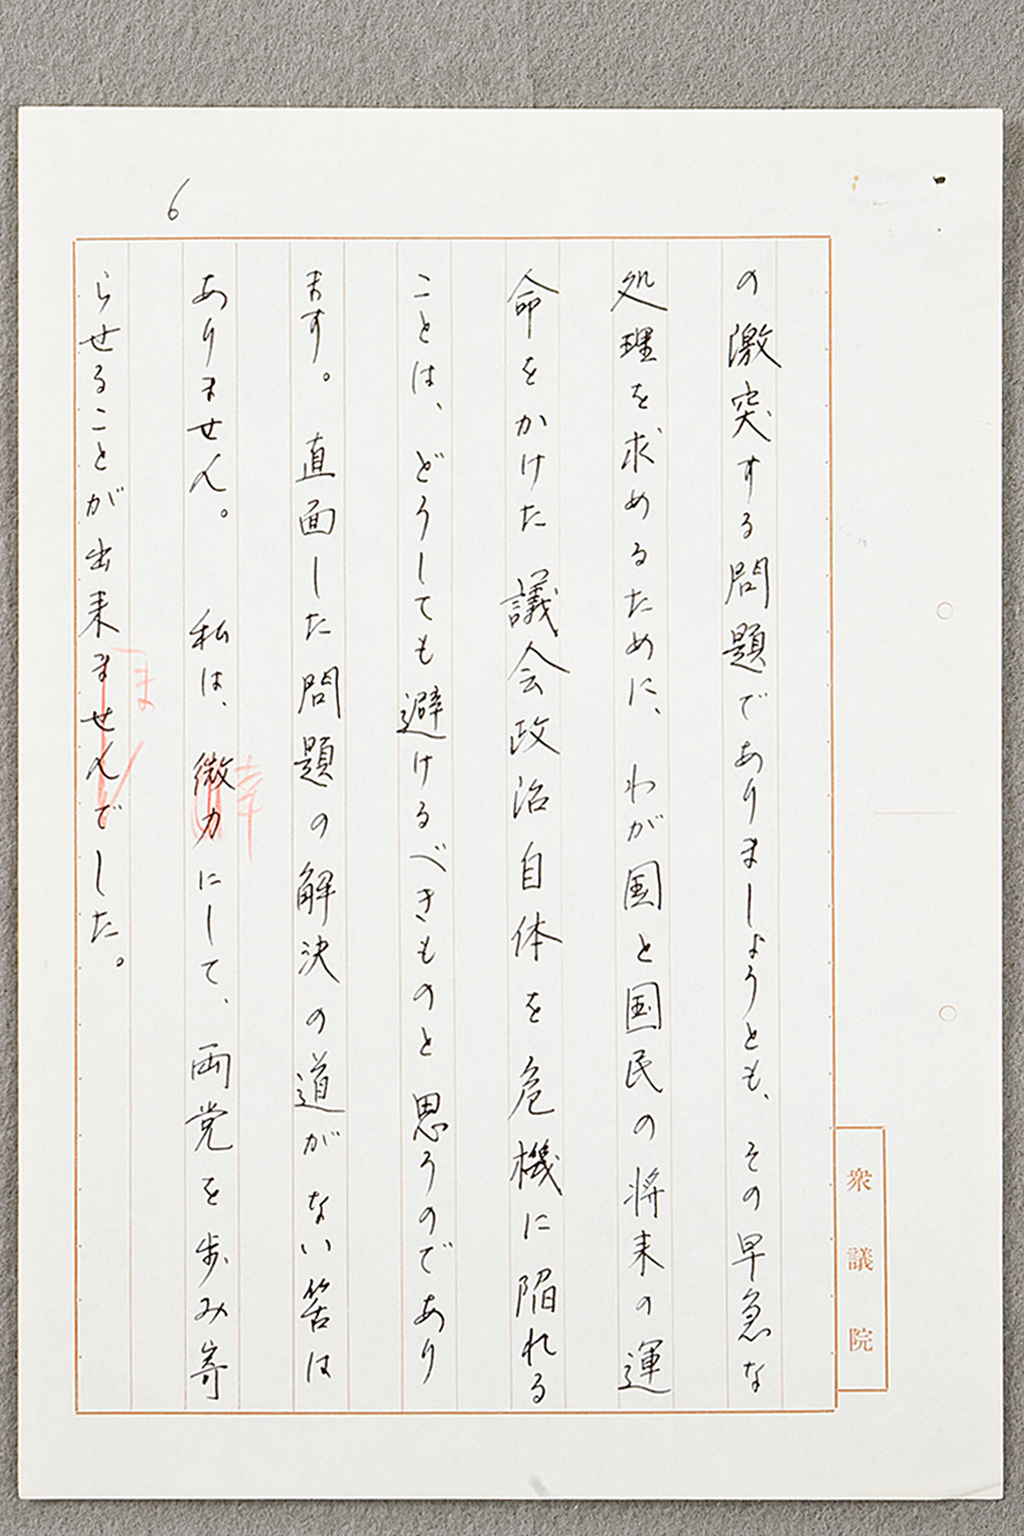 6
の激突する問題でありましょうとも、その早急な
処理を求めるために、わが国と国民の将来の運
命をかけた議会政治自体を危機に陥れる
ことは、どうしても避けるべきものと思うのであり
ます。直面した問題の解決の道がない筈は
ありません。私は、微力にして、両党を歩み寄
らせることが出来ませんでした。
衆議院